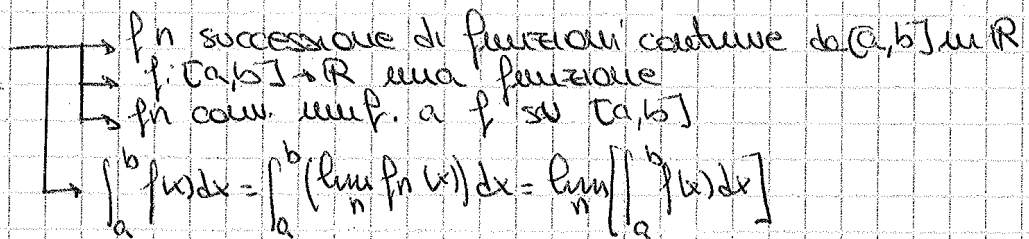 → fn successione di funzioni continue da [a,b] in ℝ
→ f: [a,b] → ℝ una funzione
→ fn conv. unif. a f su [a,b]
→ ∫_a^b f(x)dx = ∫_a^b (lim_n fn(x))dx = lim_n [∫_a^b f(x)dx]